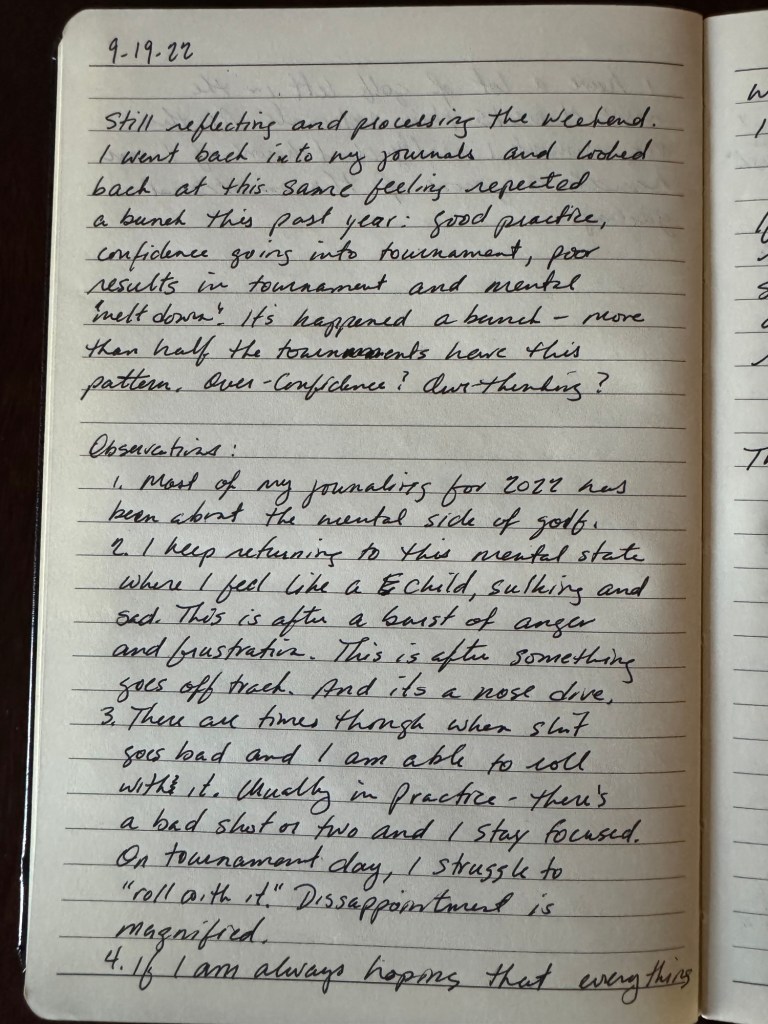 9-19-22
Still reflecting and processing the weekend.
I went back into my journals and looked
back at this same feeling repeated
a bunch this past year: good practice,
confidence going into tournament, poor
results in tournament and mental
"melt down". It's happened a bunch - more
than half the tournaments have this
pattern. Over-Confidence? Over-thinking?
Observations:
1. Most of my journaling for 2022 has
been about the mental side of golf.
2. I keep returning to this mental state
where I feel like a child, sulking and
sad. This is after a burst of anger
and frustration. This is after something
goes off track. And its a nose dive.
3. There are times though when shit
goes bad and I am able to roll
with it. Usually in Practice - there's
a bad shot or two and I stay focused.
On tournament day, I struggle to
"roll with it." Dissappointment is
magnified.
4. If I am always hoping that everything
W
I
Th